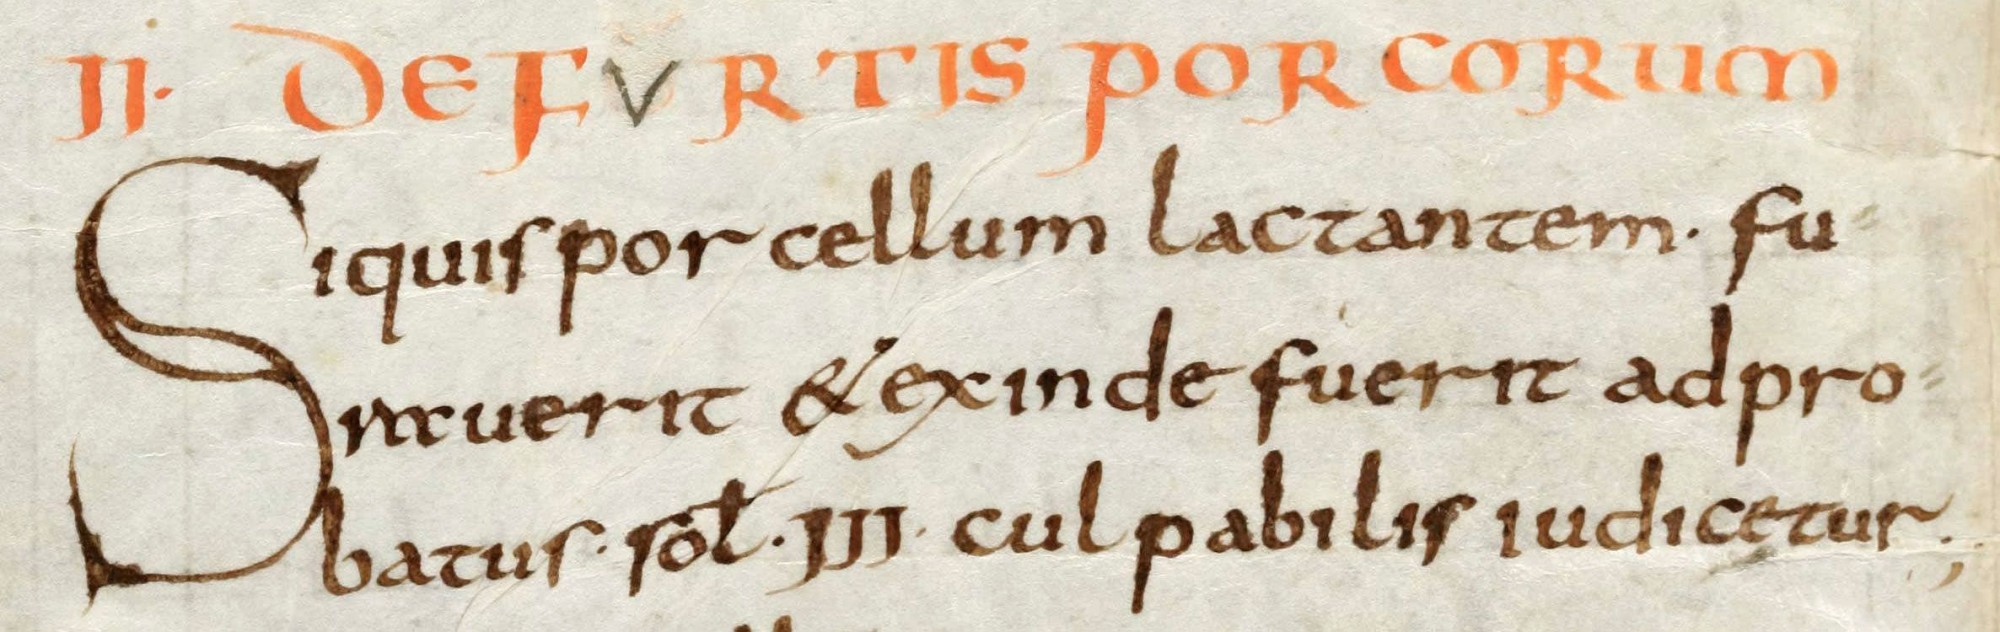 II· DE FVRTIS PORCORUM
Siquis porcellum lactantem· fu
raverit & exinde fuerit adpro
batus· sol· III· culpabilis iudicetur·,